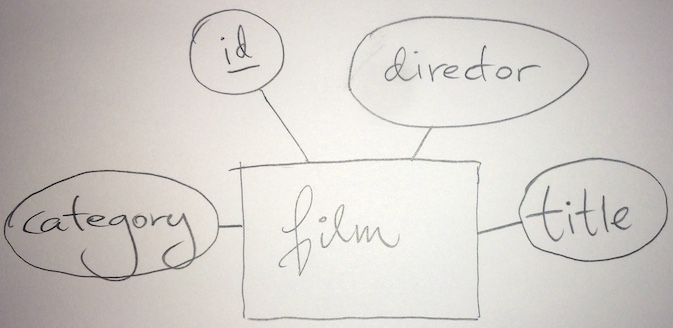 id
director
category
film
title